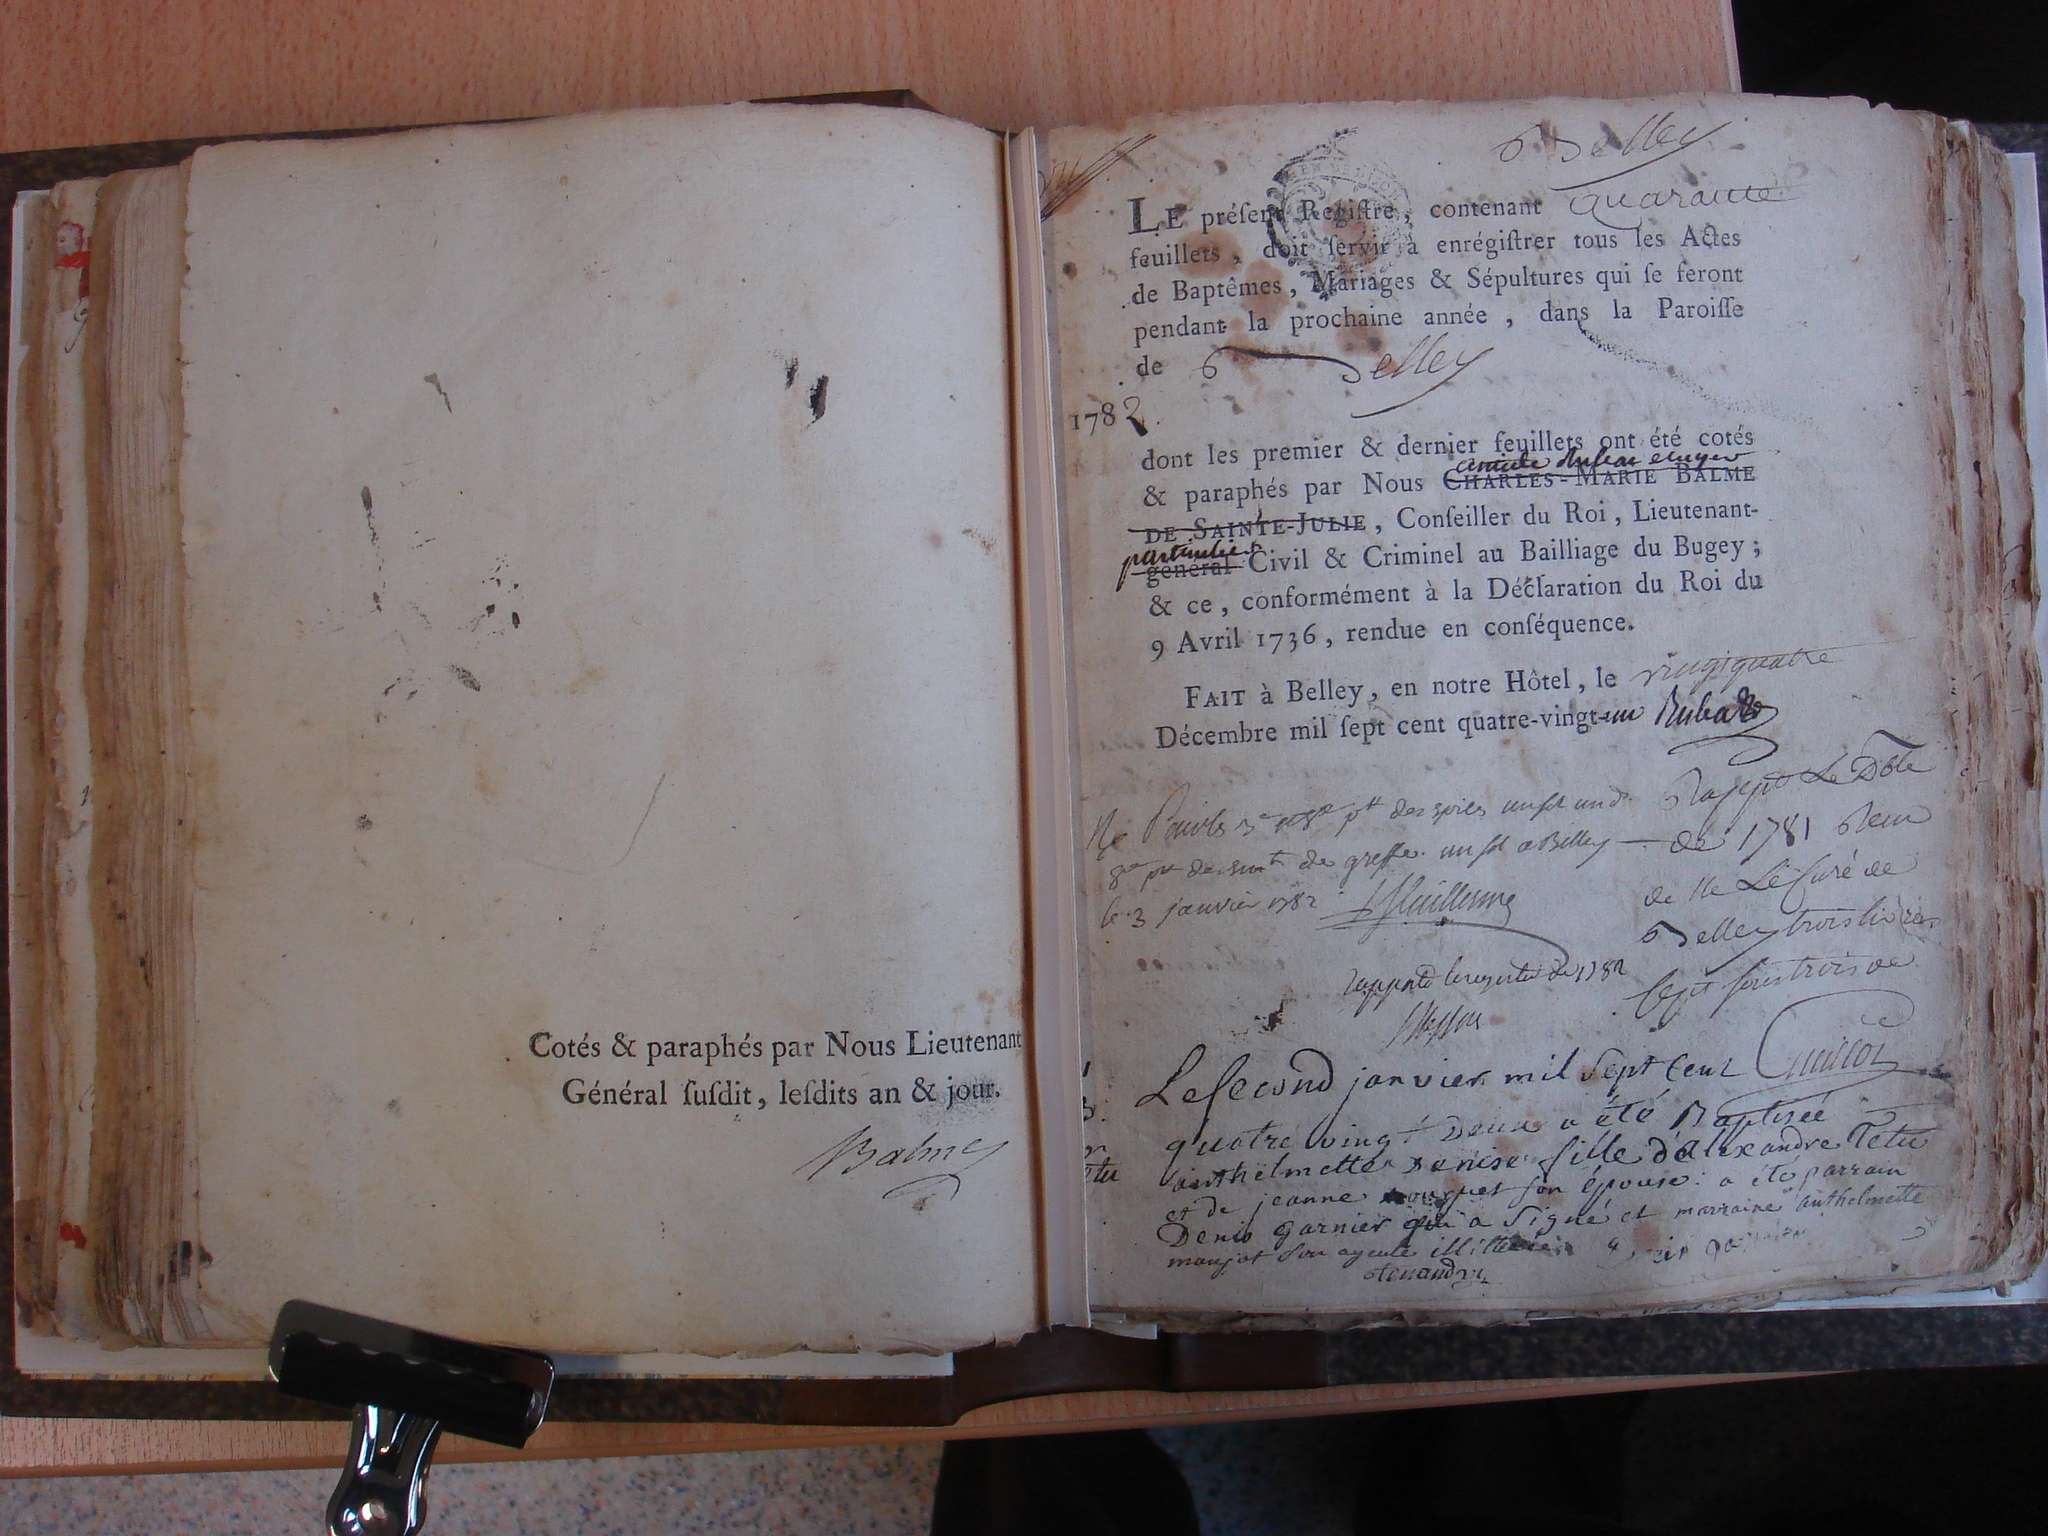 Cotés & paraphés par Nous Lieutenant
Général ſuſdit, leſdits an & jour.
Balme
Belley
LE préſent Regiſtre, contenant quarante
feuillets, doit ſervir à enrégiſtrer tous les Actes
de Baptêmes, Mariages & Sépultures qui ſe feront
pendant la prochaine année, dans la Paroiſſe
de Belley
1782.
dont les premier & dernier feuillets ont été cotés
& paraphés par Nous CHARLES-MARIE BALME
DE SAINTE-JULIE, Conſeiller du Roi, Lieutenant-
particulier
général Civil & Criminel au Bailliage du Bugey;
& ce, conformément à la Déclaration du Roi du
9 Avril 1736, rendue en conſéquence.
FAIT à Belley, en notre Hôtel, le vingt quatre
Décembre mil ſept cent quatre-vingt-un
de greffe un sol a Belley
le 3 janvier 1782
Le Dble
de 1781
de Mr Le Curé de
Belley trois livres
sept sous trois de
de 1782
Le second janvier mil sept cent
quatre vingt Deux a été Baptisée
anthelmette Denise fille d'alexandre Tetu
et de jeanne son épouse : a été parrain
Denis garnier qui a signé et marraine anthelmette
son ayeule